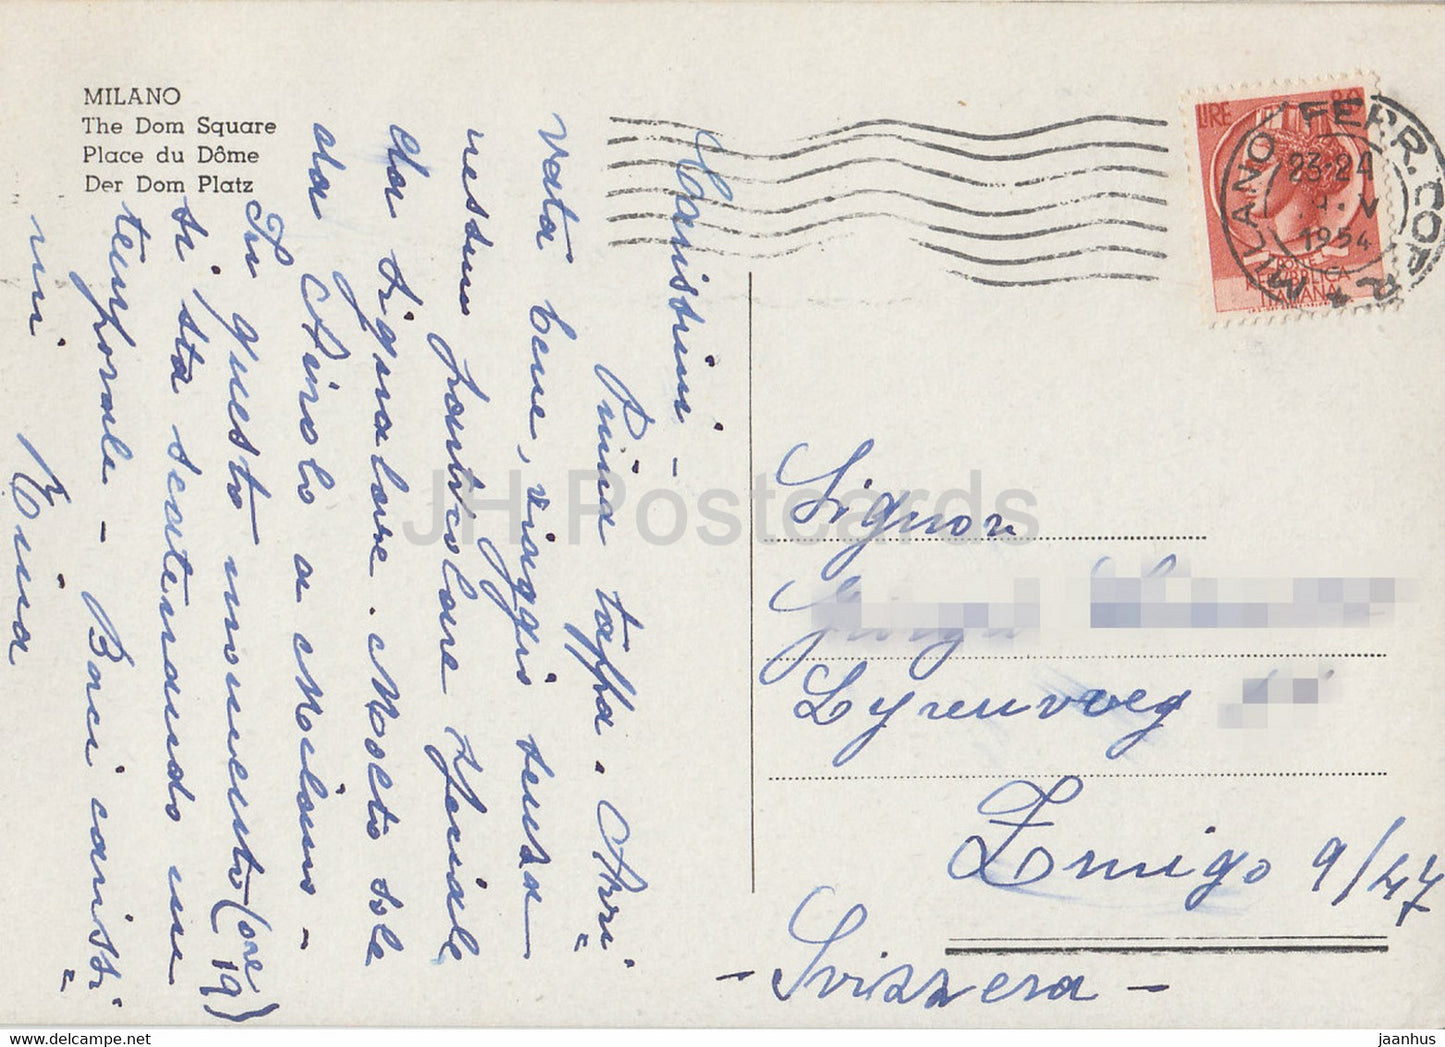 MILANO
The Dom Square
Place du Dôme
Der Dom Platz
LIRE 80
MILANO FERR. CORR.
23-24
V
1954
REPUBBLICA
ITALIANA
Carissimi -
Prima tappa. Arri=
vata bene, viaggio senza
nessun particolare speciale
da segnalare. Molto sole
da Airolo a Milano -
In questo momento (ore 19)
si sta scatenando un
temporale - Baci carissi=
mi
Signor
Lyrenweg
Zurigo 9/47
- Svizzera -
JH Postcards
jaanhus.com